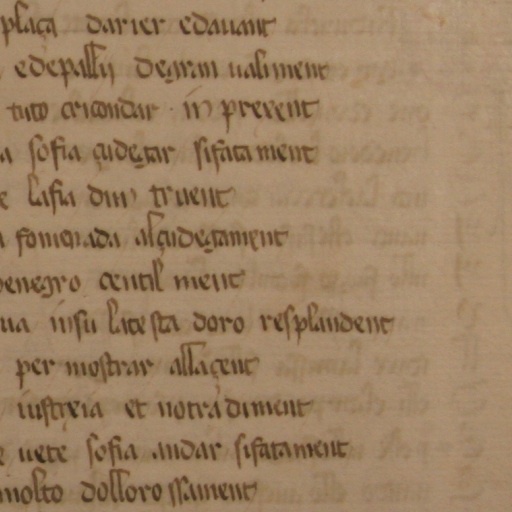 plaça darier edauant
edepallij degran ualiment
tuto circondar in preuent
a sofia çudegar sifatament
e lasia din truent
fomenada alçudegament
uenegro centil ment
ua insu latesta doro resplandent
per mostrar allaçent
iustixia et notradiment
e uete sofia andar sifatament
molto dolloro ssament